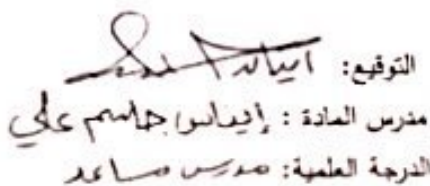 التوقيع:
مدرس المادة : إيناس جاسم علي
الدرجة العلمية: مدرس مساعد